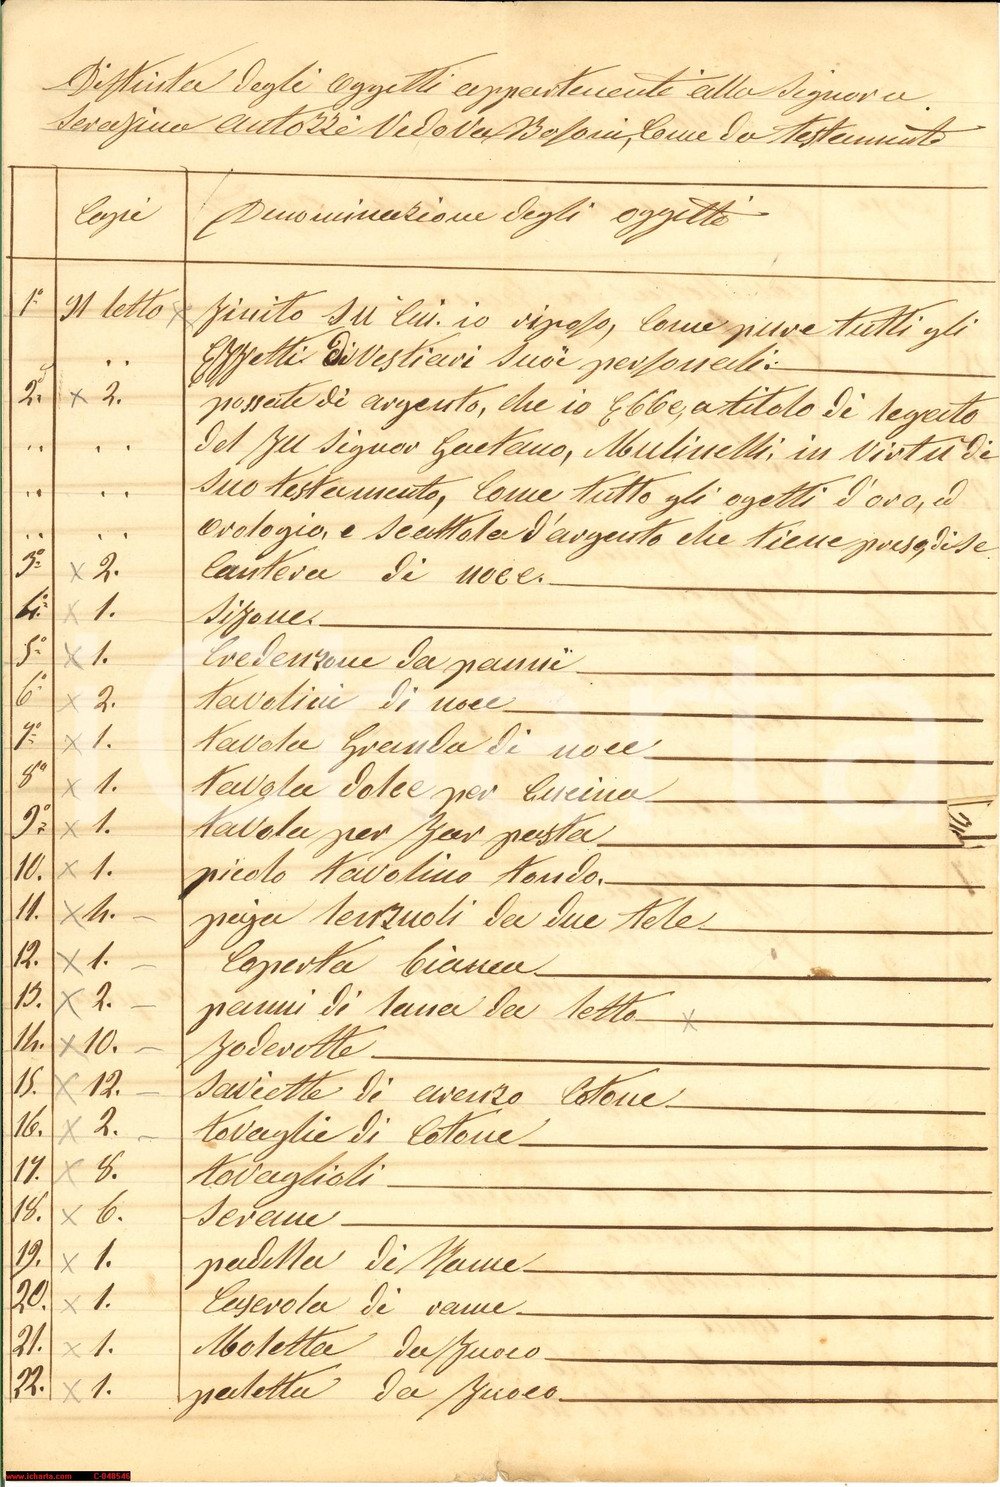 Distinta degli Oggetti appartenenti alla Signora
Serafina Antozzi Vedova Bosoni, Come da testamento
Capi Denominazione degli oggetti
1º Il letto finito su Cui io riposo, Come pure tutti gli
Effetti Di vestiari Suoi personali:
2º 2. possate di argento, che io Ebbe, a titolo di legato
del fu Signor Gaetano, Mulinelli, in virtu di
suo testamento, Come tutto gli ogetti d'oro, ed
Orologio, e Scattola d'argento che tiene preso, di Se
3º 2. Cantera di noce.
4º 1. Sifone.
5º 1. Credenzone da panni
6º 2. tavolini di noce
7º 1. tavola Granda di noce
8º 1. tavola dolce per Cucina
9º 1. tavola per far pasta
10. 1. picolo tavolino tondo.
11. 4. paja lenzuoli da due tele
12. 1. Coperta bianca
13. 2. panni di lana da letto
14. 10. foderotte
15. 12. Saviette di arenzo Cotone
16. 2. tovaglie di Cotone
17. 8. tovaglioli
18. 6. Serane
19. 1. padella di Rame
20. 1. Caserola di rame
21. 1. Moletta da fuoco
22. 1. paletta da fuoco
www.icharta.com C-048546